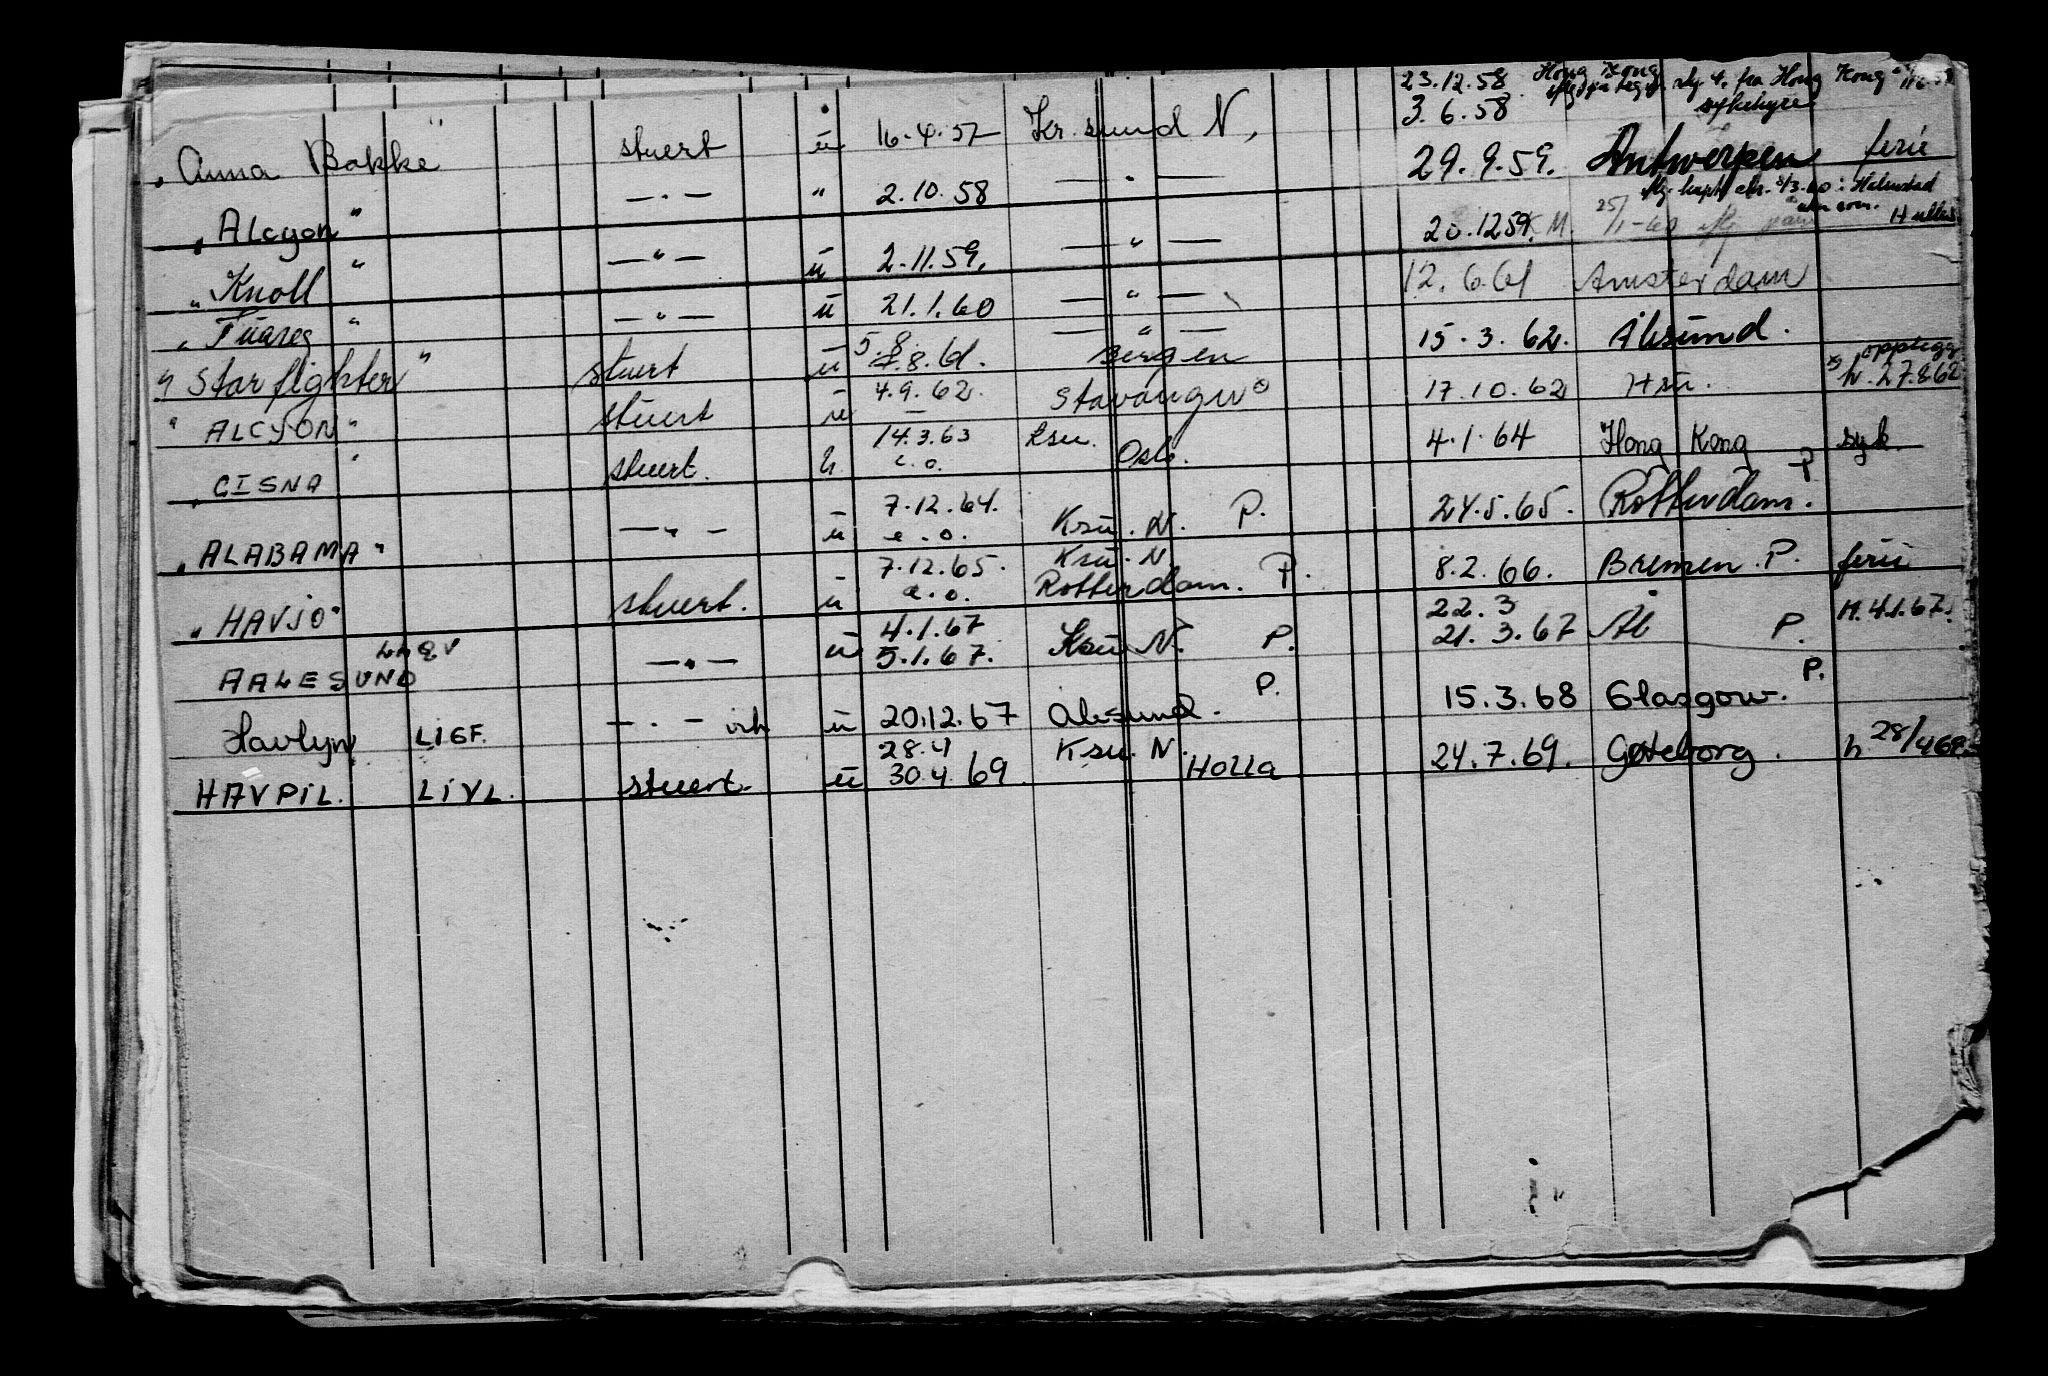 23.12.58 Hong Kong fra Hong Kong
3.6.58 sykehyre
"Anna Bakke" stuert ü 16.4.57 Kr.sund N,
29.9.59. Antwerpen ferie
"Alcyon" —.— " 2.10.58 — . —
"Knoll" —"— ü 2.11.59. — " — 20.12.59 K.M. 25/1-60
"Tüareg" —"— ü 21.1.60 — " — 12.6.61 Amsterdam
"Starflighter" stuert ü 5.8 8.61. — " — Bergen 15.3.62. Ålesund.
"ALCYON" stuert ü 4.9.62. — Stavanger 17.10.62 Hsü. opplegg h.27.8.62
"CISNA" stuert. h. 14.3.63 e.o. Ksu. Oslo. 4.1.64 Hong Kong syk.
"ALABAMA" —"— ü 7.12.64. e.o. Ksü. N. P. 24.5.65. Rotterdam. P
"HAVJO" stuert. ü 7.12.65. e.o. Ksü. N Rotterdam. P. 8.2.66. Bremen. P. ferie
AALESUND —"— ü 4.1.67 5.1.67. Ksü N. P. 22.3 21.3.67 Ål P. H.4.1.67.
Havlyn LIGF. —.— ü 20.12.67 Ålesund. P. 15.3.68 Glasgow. P.
HAVPIL. LIVL. stuert. ü 28.4 30.4.69. Ksu. N. Holla 24.7.69. Gøteborg. h 28/4 69